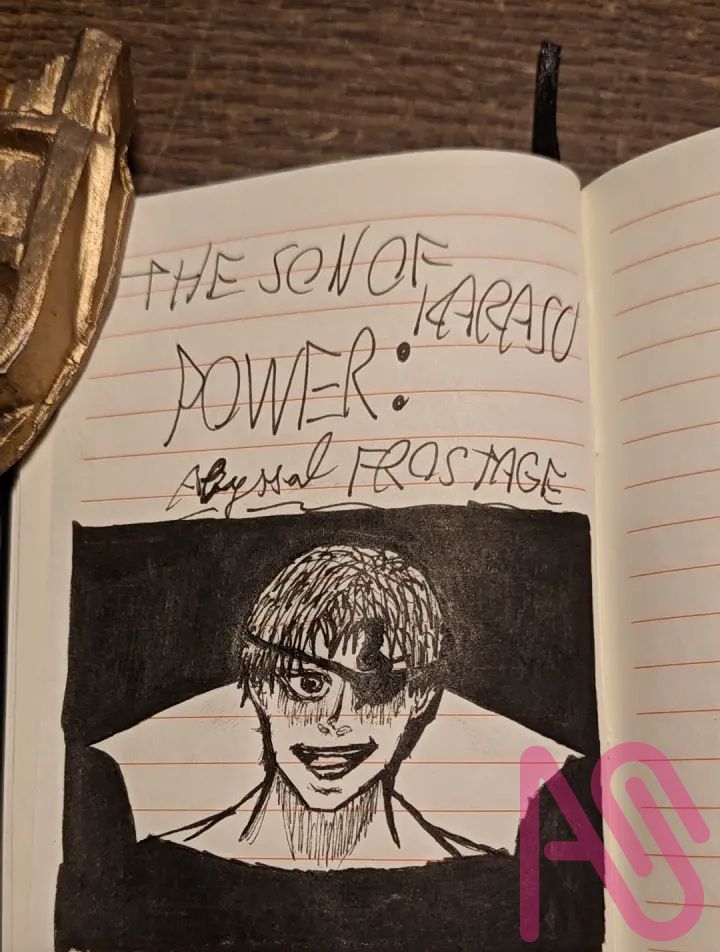 THE SON OF
KARASU
POWER:
Abyssal FROSTAGE
AS